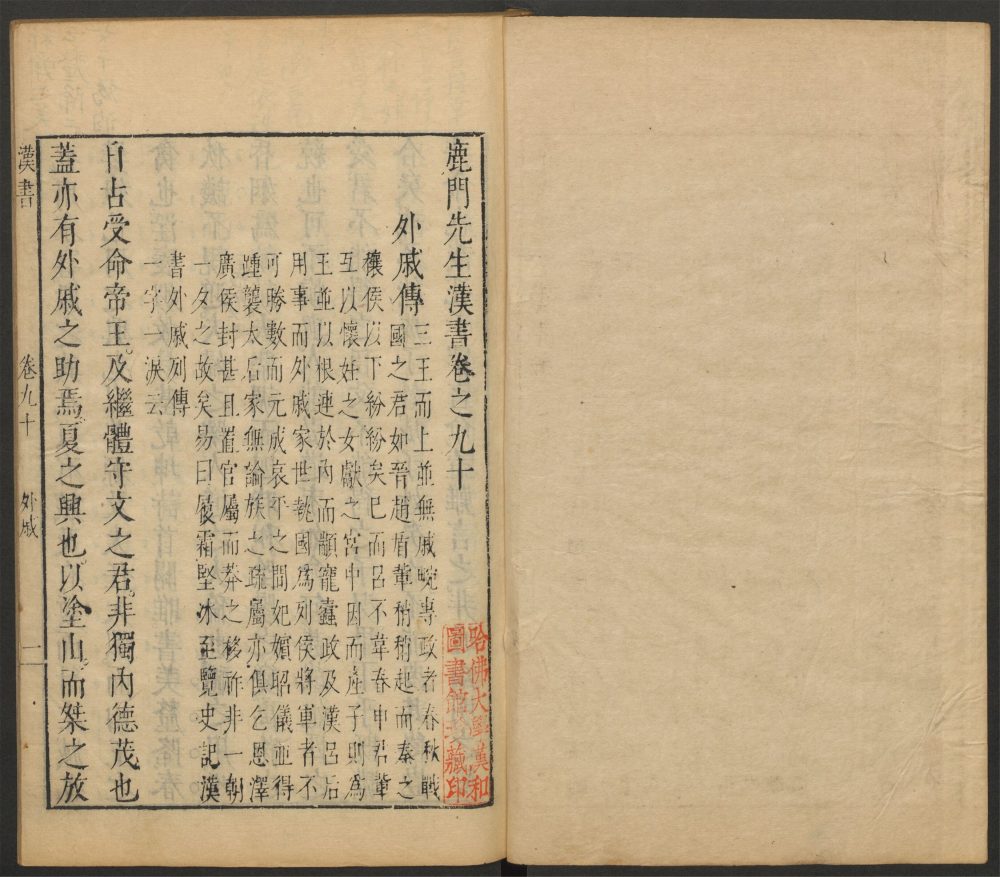 鹿門先生漢書卷之九十
外戚傳
三王而上並無戚畹專政者春秋戰
國之君如晉趙盾輩稍稍起而秦之
穰侯以下紛紛矣已而呂不韋春申君輩
互以懷妊之女獻之宮中因而產子則爲
王並以根連於內而顓寵蠹政及漢呂后
用事而外戚家世執國爲列侯將軍者不
可勝數而元成哀平之間妃嬪昭儀並得
踵襲太后家無論族之疏屬亦俱乞恩澤
廣侯封甚且置官屬而莽之移祚非一朝
一夕之故矣易曰履霜堅冰至覽史記漢
書外戚列傳
一字一淚云
自古受命帝王及繼體守文之君非獨內德茂也
蓋亦有外戚之助焉夏之興也以塗山而桀之放
漢書
卷九十
外戚
一
哈佛大學漢和
圖書館珍藏印